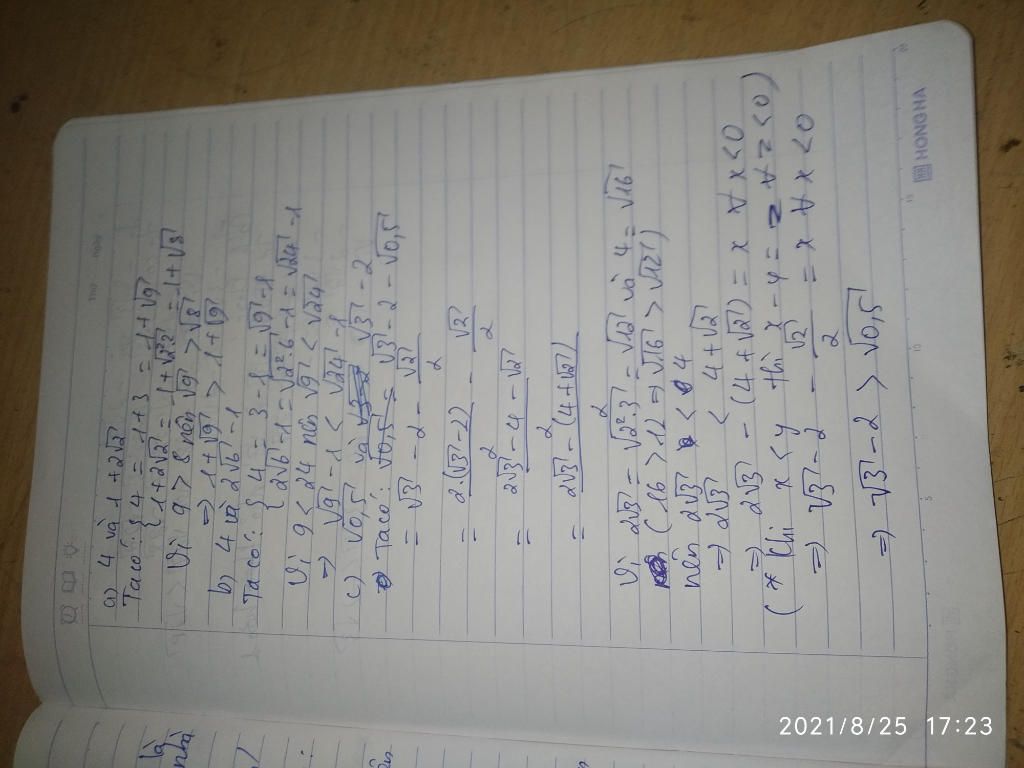 a) 4 và 1+2√2
Ta có: { 4 = 1+3 = 1+√9
{ 1+2√2 = 1+√2².2 = 1+√8
Vì 9 > 8 nên √9 > √8
⇒ 1+√9 > 1+√9
b) 4 và 2√6 - 1
Ta có: { 4 = 3 - 1 = √9 - 1
{ 2√6 - 1 = √2².6 - 1 = √24 - 1
Vì 9 < 24 nên √9 < √24
⇒ √9 - 1 < √24 - 1
c) √0,5 và √3 - 2
Ta có: √0,5 = √3 - 2 - √0,5
= √3 - 2 - √2/2
= 2.(√3-2)/2 - √2/2
= 2√3 - 4 - √2/2
= 2√3 - (4+√2)/2
Vì 2√3 = √2².3 = √12 và 4 = √16
(16 > 12 ⇒ √16 > √12)
nên 2√3 < 4
⇒ 2√3 < 4+√2
⇒ 2√3 - (4+√2) = x ∀ x < 0
(* Khi x < y thì x - y = z ∀ z < 0)
⇒ √3 - 2 - √2/2 = x ∀ x < 0
⇒ √3 - 2 > √0,5
HONGHA
5
10
15
20
2021/8/25 17:23